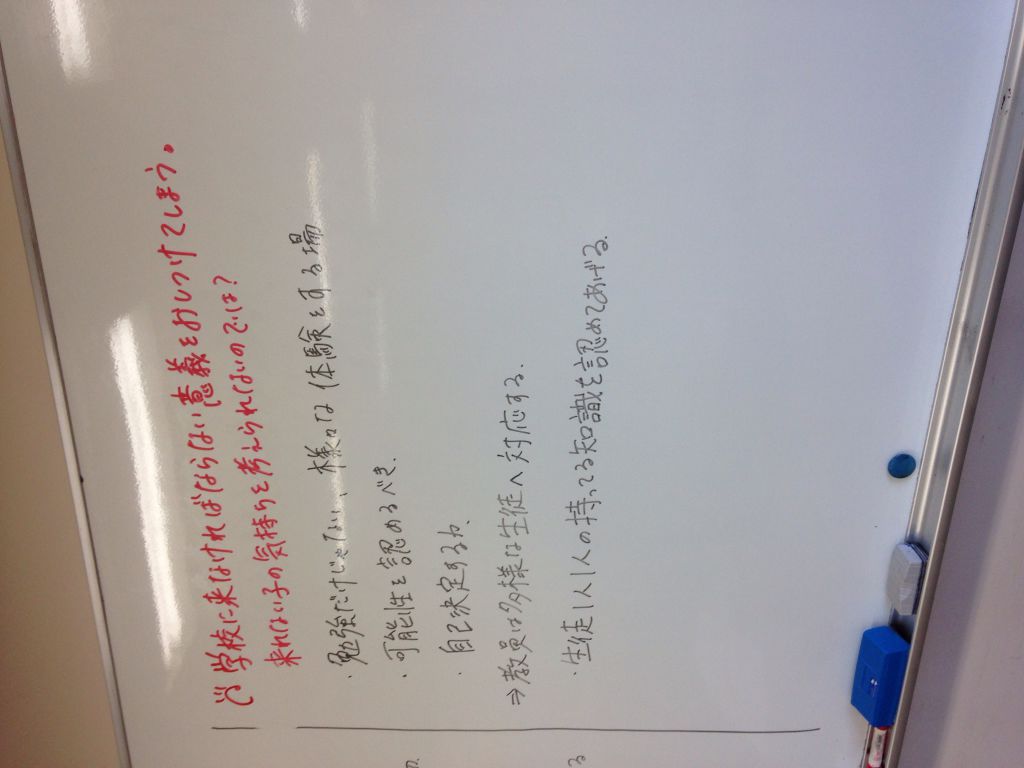 学校に来なければならない意義をおしつけてしまう。
来れない子の気持ちを考えられないのでは?
・勉強だけじゃない、様々な体験をする場
・可能性を認めるべき、
・自己決定する力、
⇒教員は多様な生徒へ対応する、
・生徒1人1人の持ってる知識を認めてあげる。
る